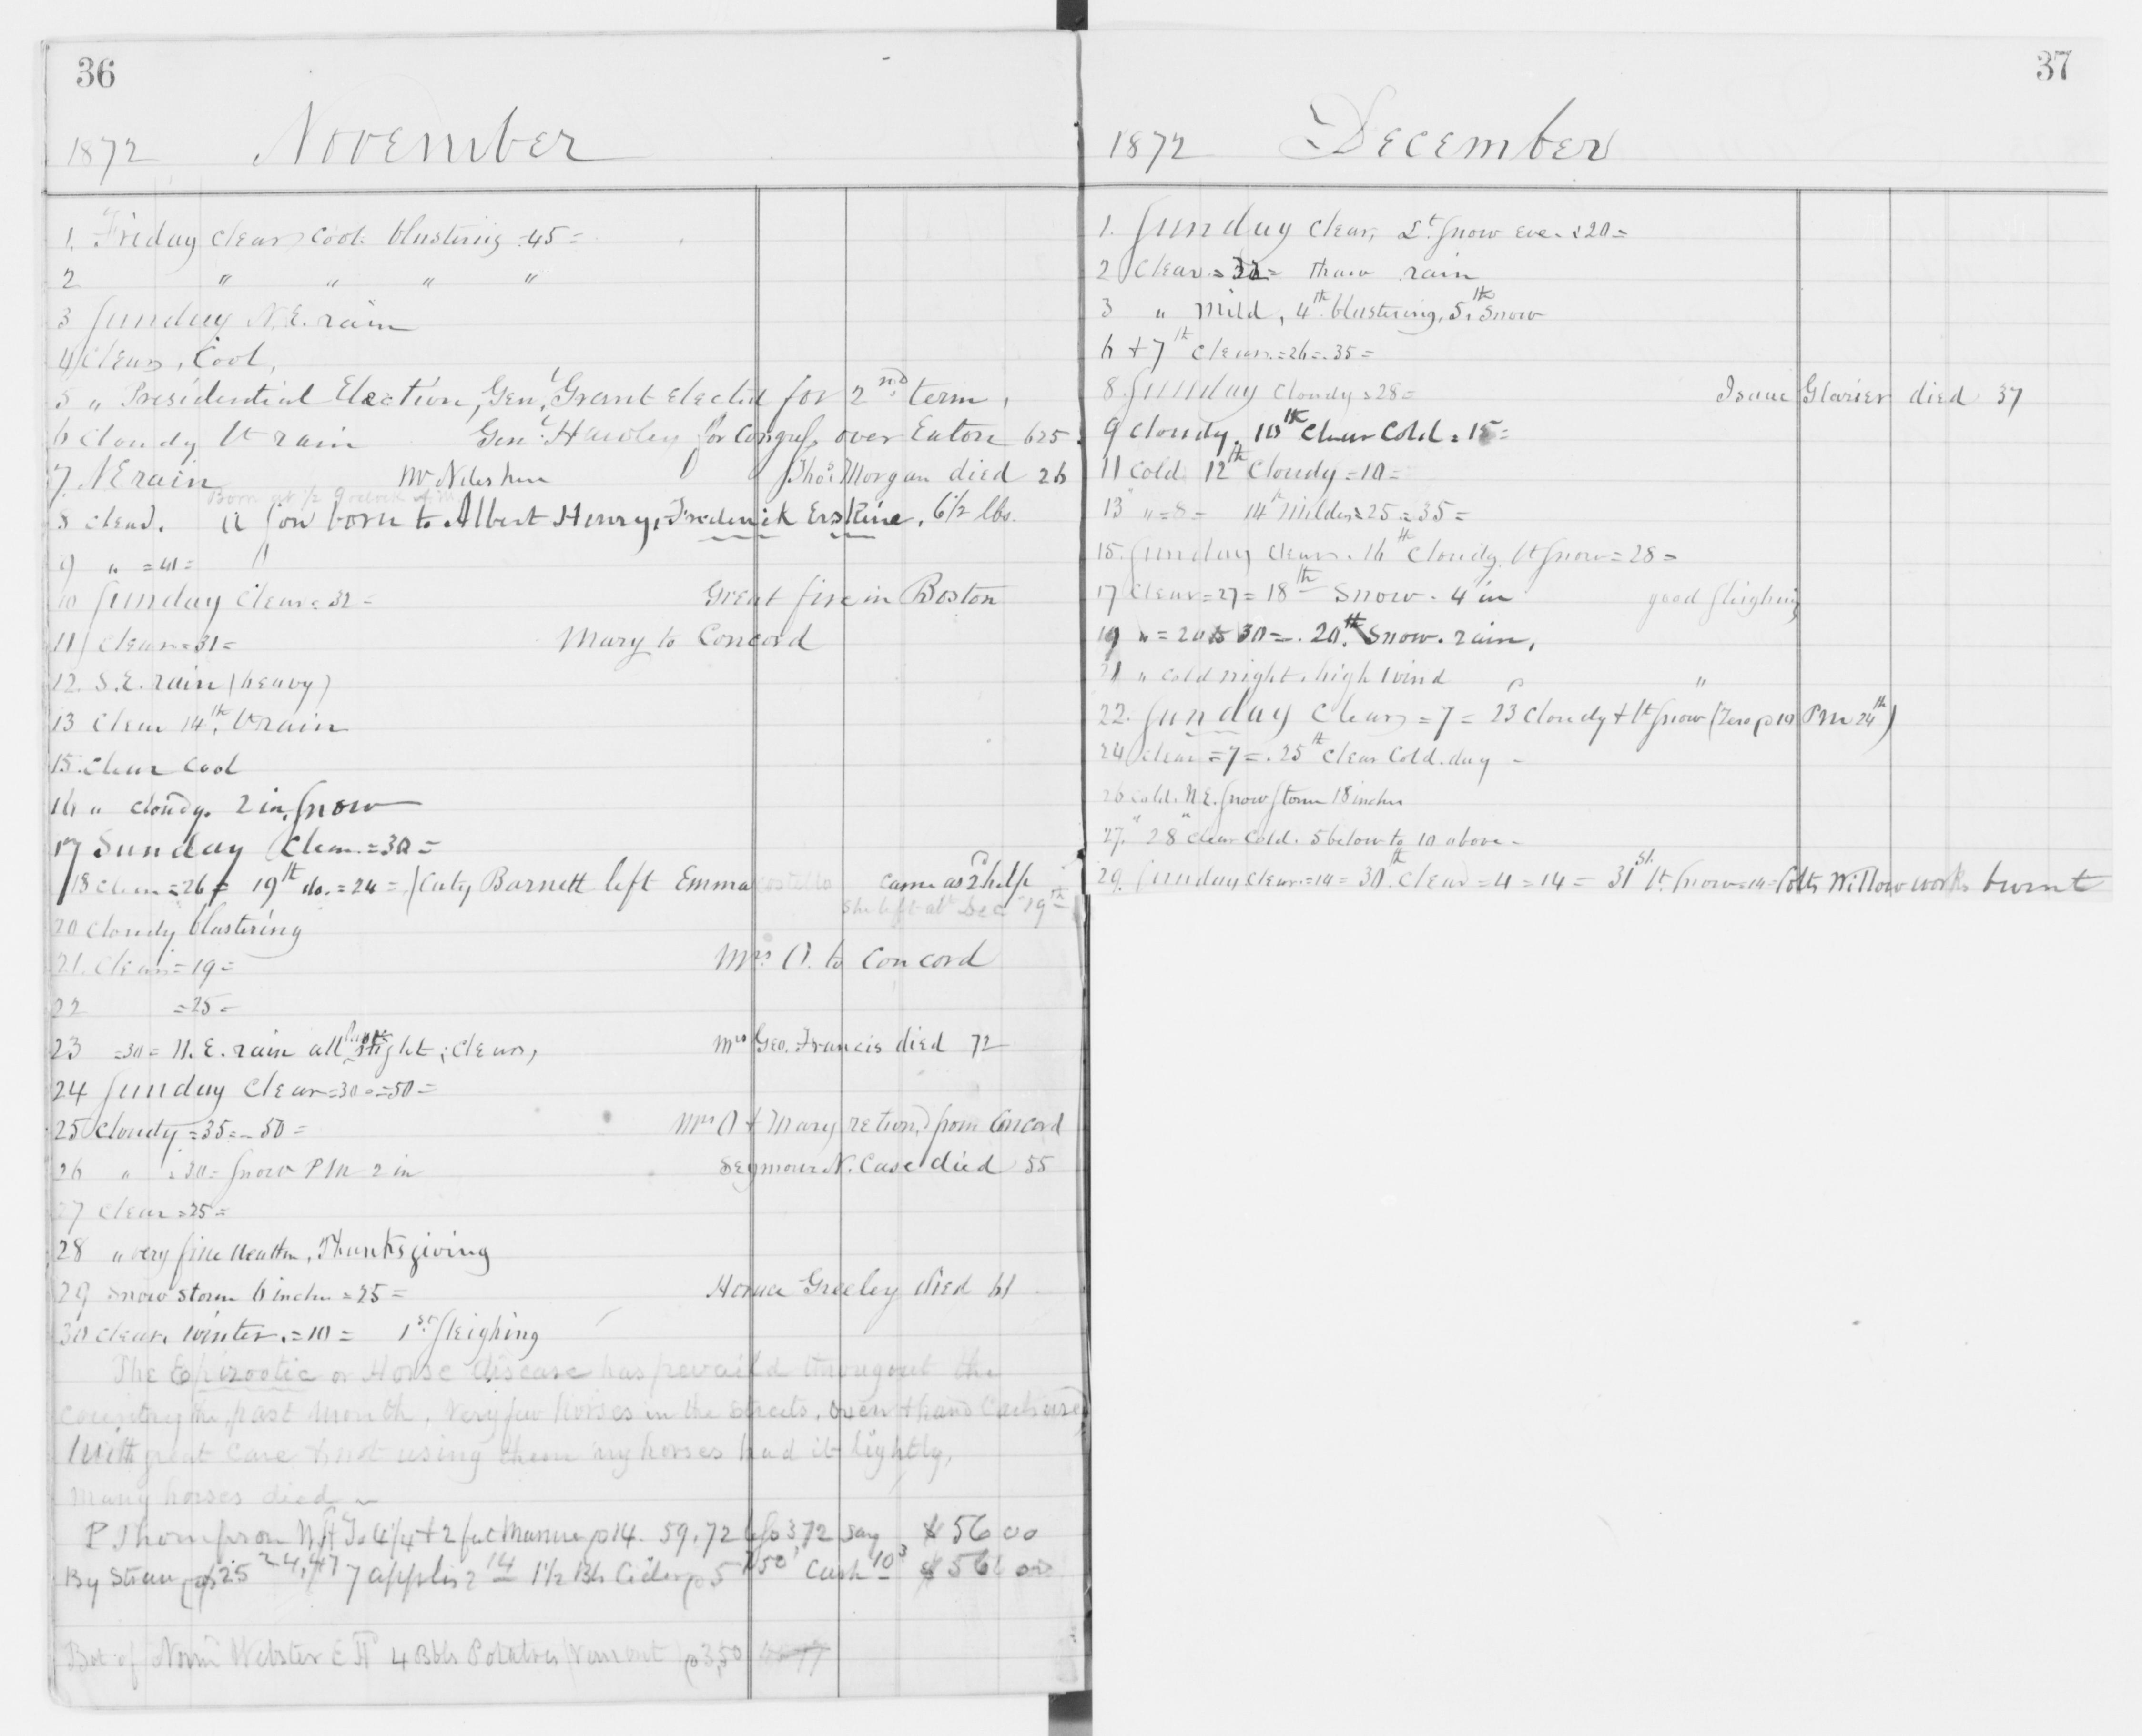 36
1872 November
1. Friday clear cool blustering =45=
2 " " " "
3 Sunday N.E. rain
4 Clear, Cool,
5 " Presidential Election, Genl. Grant elected for 2nd term,
6 Cloudy lt rain Genl. Hawley for Congress over Eaton 625.
7. N E rain Mr Niles here Thos. Morgan died 26
Born at 1/2 9 oclock A.M.
8 clear. a son born to Albert Henry, Frederick Erskine, 6 1/2 lbs.
9 " =41=
10 Sunday Clear =32= Great fire in Boston
11 Clear =31= Mary to Concord
12. S.E. rain (heavy)
13 Clear 14th. lt rain
15. clear cool
16 " cloudy. 2 in. snow
17 Sunday Clear =30=
18 clear =26= 19th do. =24= Caty Barnett left Emma Costello came as 2 help
She left abt Dec 19th
20 Cloudy blustering
21. Clear =19= Mrs O. to Concord
22 =25=
23 =30= N.E. rain all night; clear, Mrs Geo. Francis died 72
24 Sunday Clear =30 = =50=
25 Cloudy =35=-50= Mrs O & Mary returnd from Concord
26 " =30= snow P M 2 in Seymour N. Case died 55
27 Clear =25=
28 " very fine weather, Thanksgiving
29 Snow storm 6 inches =25= Horace Greeley died 61
30 clear. winter. =10= 1st sleighing
The Epizootic or Horse disease has prevaild througout the
country the past month, very few horses in the streets, oxen & hand carts used
With great care & not using them my horses had it lightly,
Many horses died
P Thompson 4/4 + 2 manure 14. 59.72 less 3.72 say $56 00
By Straw 25 24,47 7 apples 2 14 1 1/2 Bls Cider 5 7 50 Cash 10 $56 00
Bot of Webster E H 4 Bbls Potatoes Vermont 3,50
37
1872 December
1. Sunday Clear, Lt. snow eve. =20=
2 Clear =32= thaw rain
3 " Mild, 4th. blustering, 5th. Snow
6 + 7th Clear. =26=.35=
8. Sunday Cloudy =28= Isaac Glazier died 37
9 Cloudy. 10th clear Cold =15=
11 Cold 12th Cloudy =10=
13 " =8= 14th Milder =25=35=
15. Sunday Clear. 16th Cloudy lt snow =28=
17 Clear =27= 18th Snow. 4 in good sleighing
19 " =20 to 30=. 20.th Snow. rain,
21 " cold night. high wind "
22. Sunday Clear =7= 23 Cloudy & lt snow (Zero 10 P M 24th)
24 clear =7=. 25th clear Cold. day -
26 Cold. N E. snow storm 18 inches
27. " 28 " clear Cold. 5 below to 10 above -
29. Sunday Clear =14= 30th. clear =4=14= 31st lt. snow =14= Colts Willow works burnt